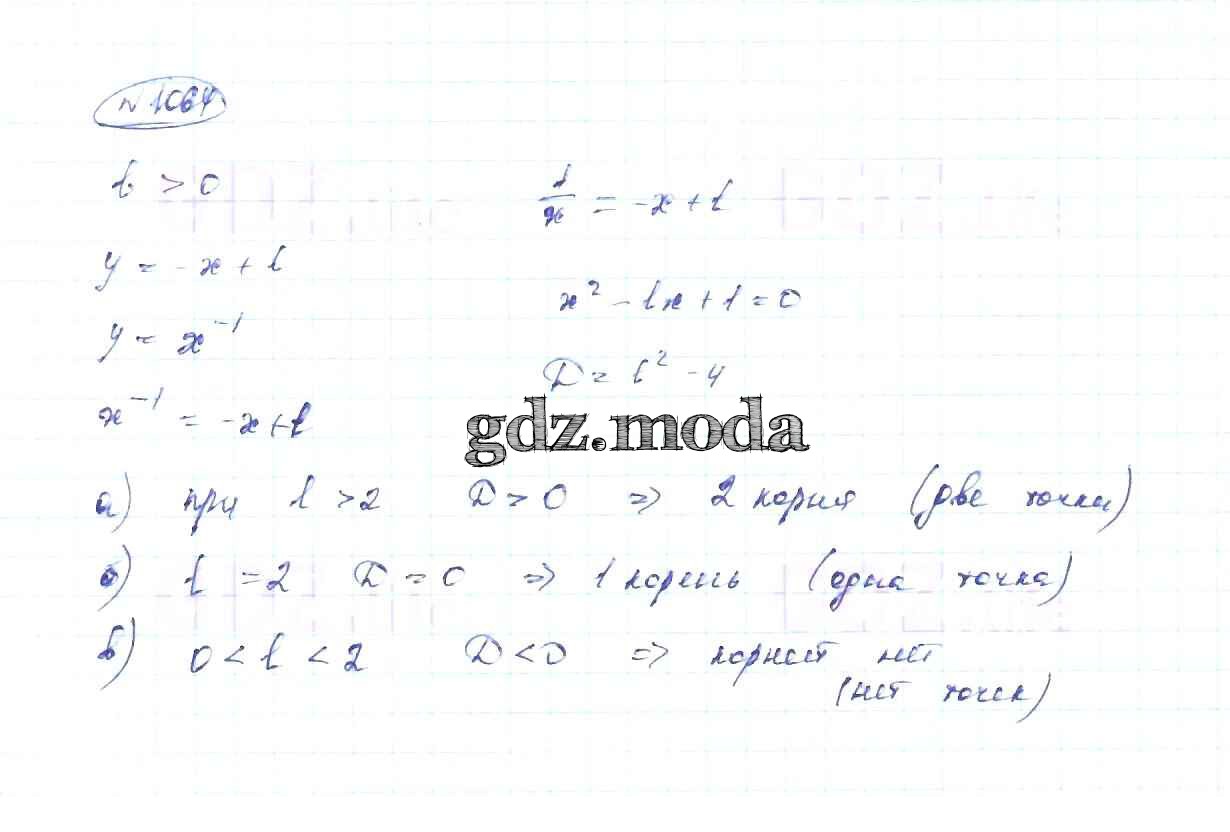 № 1064
b > 0
y = -x + b
y = x⁻¹
x⁻¹ = -x + b
1/x = -x + b
x² - bx + 1 = 0
D = b² - 4
gdz.moda
а) при b > 2 D > 0 => 2 корня (две точки)
б) b = 2 D = 0 => 1 корень (одна точка)
в) 0 < b < 2 D < 0 => корней нет
(нет точек)